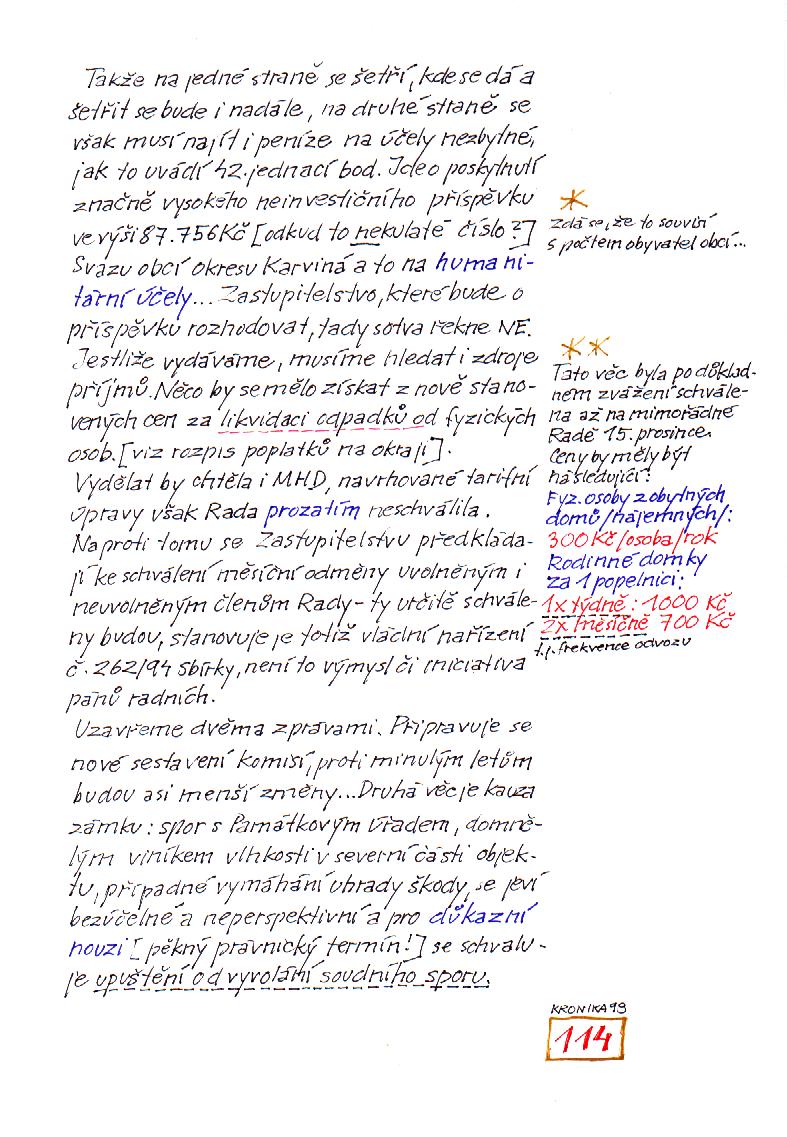 Takže na jedné straně se šetří, kde se dá a
šetřit se bude i nadále, na druhé straně se
však musí najít i peníze na účely nezbytné,
jak to uvádí 42. jednací bod. Jde o poskytnutí
značně vysokého neinvestičního příspěvku
ve výši 87.756 Kč [odkud to nekulaté číslo?]
Svazu obcí okresu Karviná a to na humani-
tární účely... Zastupitelstvo, které bude o
příspěvku rozhodovat, tady sotva řekne NE.
Jestliže vydáváme, musíme hledat i zdroje
příjmů. Něco by se mělo získat z nově stano-
vených cen za likvidaci odpadků od fyzických
osob. [viz rozpis poplatků na okraji].
Vydělat by chtěla i MHD, navrhované tarifní
úpravy však Rada prozatím neschválila.
Naproti tomu se Zastupitelstvu předkláda-
jí ke schválení měsíční odměny uvolněným i
neuvolněným členům Rady - ty určitě schvále-
ny budou, stanovuje je totiž vládní nařízení
č. 262/94 sbírky, není to výmysl či iniciativa
panů radních.
Uzavřeme dvěma zprávami. Připravuje se
nové sestavení komisí, proti minulým letům
budou asi menší změny... Druhá věc je kauza
zámku: spor s Památkovým úřadem, domně-
lým viníkem vlhkosti v severní části objek-
tu, případné vymáhání úhrady škody, se jeví
bezúčelné a neperspektivní a pro důkazní
nouzi [pěkný právnický termín!] se schvalu-
je upuštění od vyvolání soudního sporu.
*
Zdá se, že to souvisí
s počtem obyvatel obcí...
**
Tato věc byla po důklad-
ném zvážení schvále-
na až na mimořádné
Radě 15. prosince.
Ceny by měly být
následující:
Fyz. osoby z obytných
domů /nájemných/:
300 Kč/osoba/rok
Rodinné domky
za 1 popelnici:
1x týdně: 1000 Kč
2x měsíčně 700 Kč
t.j. frekvence odvozu
KRONIKA 98
114